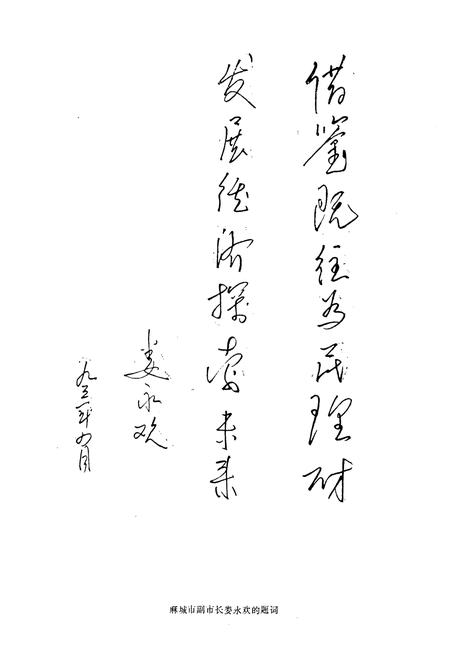 借鉴既往为民理财
发展经济探索未来
娄永欢
九三年九月
麻城市副市长娄永欢的题词